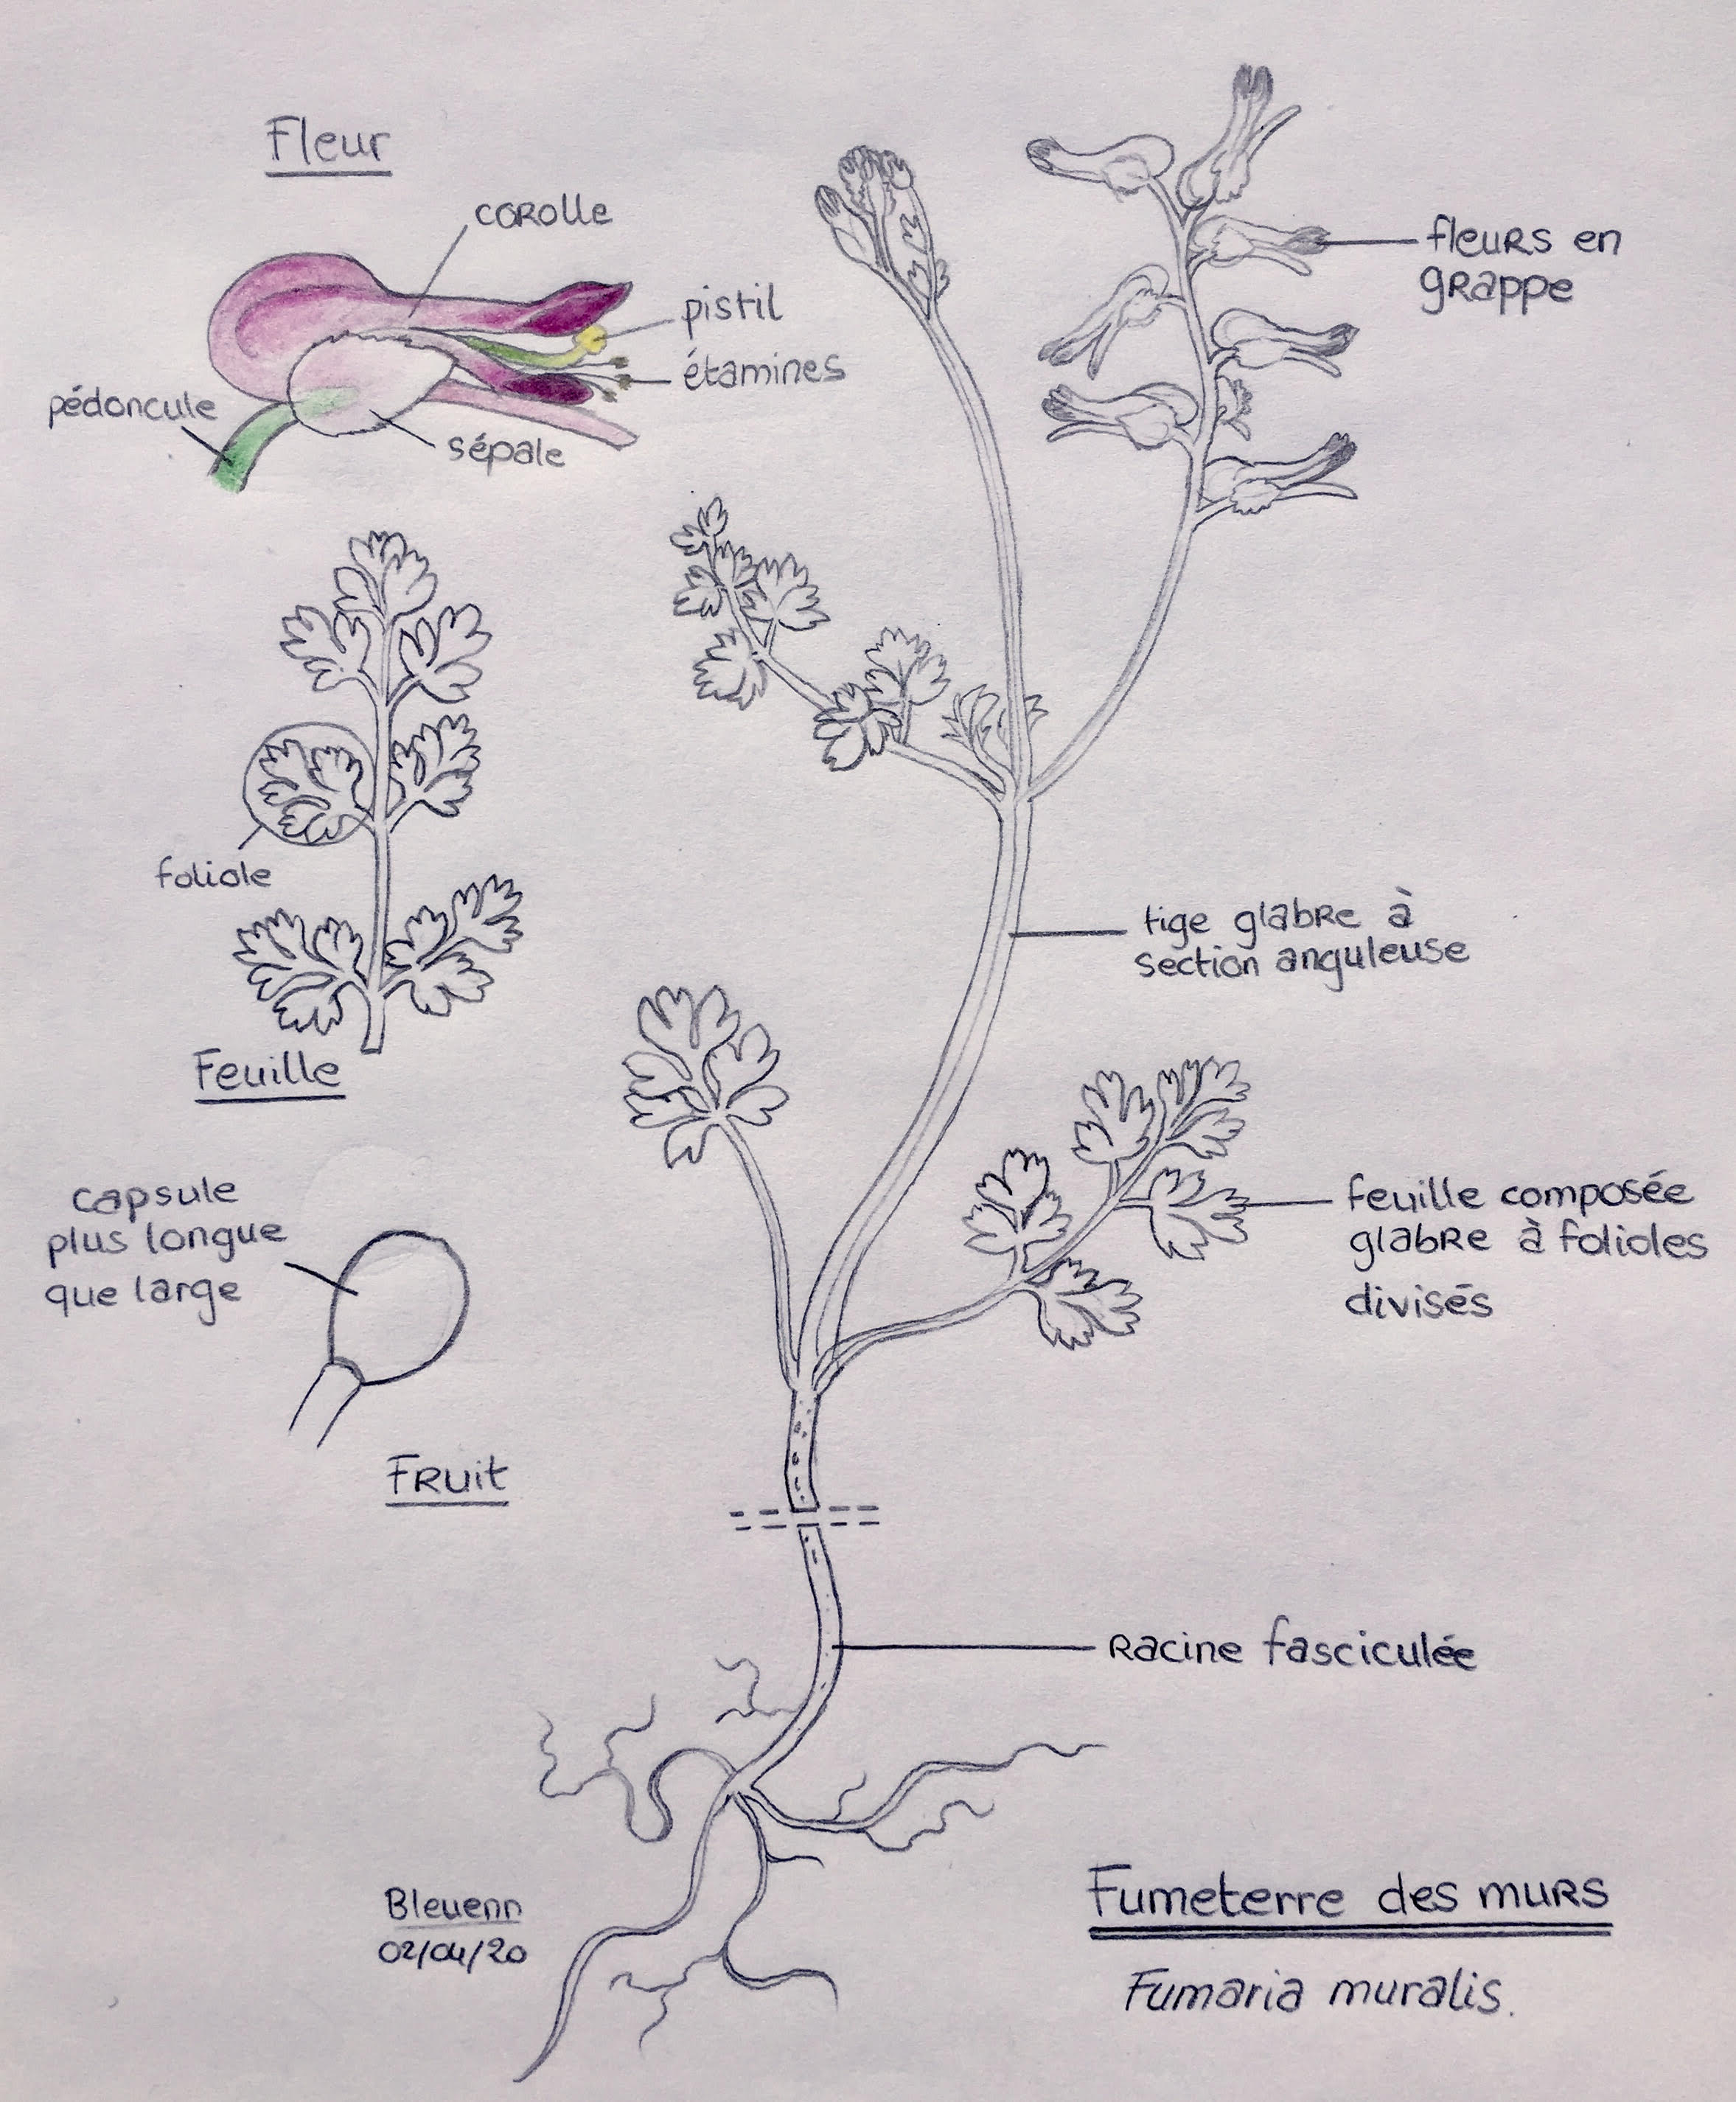 Fleur
corolle
pistil
étamines
pédoncule
sépale
fleurs en
grappe
foliole
Feuille
tige glabre à
section anguleuse
capsule
plus longue
que large
Fruit
feuille composée
glabre à folioles
divisés
Racine fasciculée
Bleuenn
02/04/20
Fumeterre des murs
Fumaria muralis.